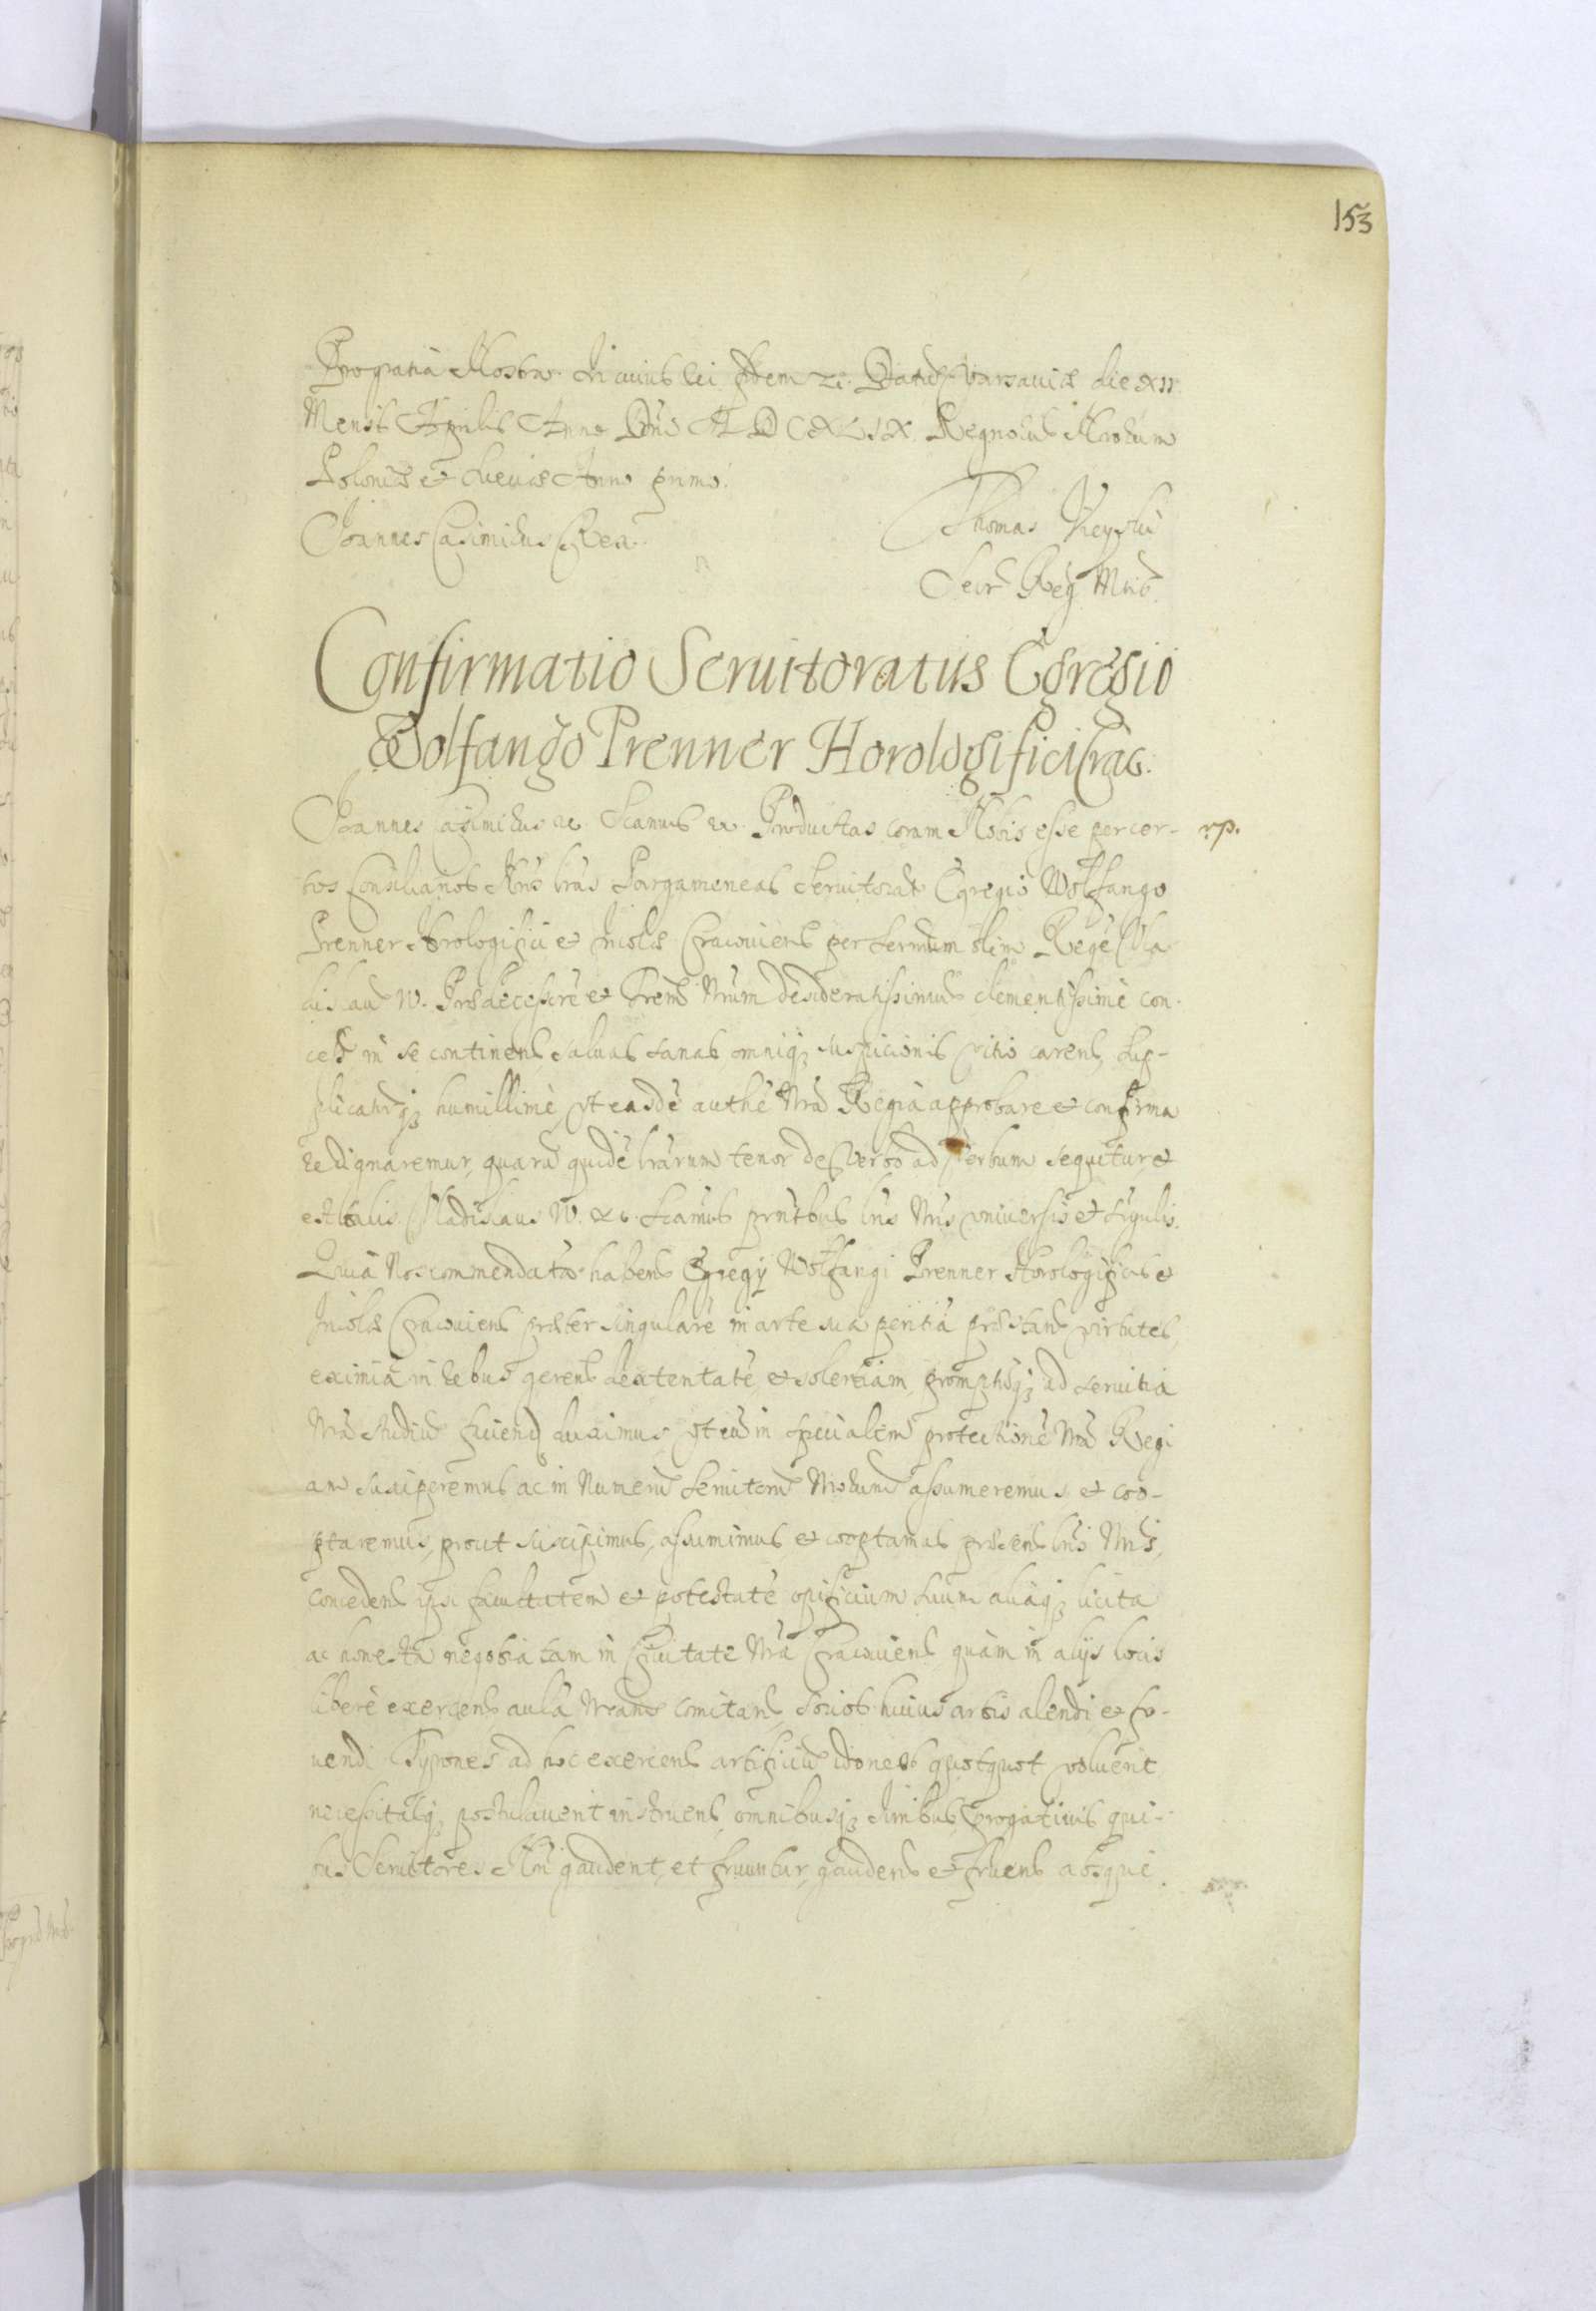 153
pro gratia Nostra. In cuius rei fidem etc. Datum Varsaviæ die XII
Mensis Aprilis Anno Dni MDCXLIX Regnorum Nrorum
Poloniæ et Sueciæ Anno primo.
Joannes Casimirus Rex.
Thomas Uieyski
Secr Reg Mtis
Confirmatio Seruitoratus Egregio
Wolfango Prenner Horologifici Crac:
Joannes Casimirus etc. Sicamus etc. Productas coram Nobis esse per cer- rp.
tos Consiliarios Nros lras Pargameneas Seruitorat Egregio Wolfango
Prenner Horologifici et Incolæ Cracouiens per Sermum olim Regē Vla
dislaū IV. Prædecessorē et Frem Nrum desideratissimum clementissimè con-
ces in se continens, saluas sanas omniq suspicionis vitio carens, sup-
plicatq humillimè, vt easdē authe Nra Regia approbare et confirma
re dignaremur, quarū quidē lrarum tenor de verbo ad verbum sequitur et
est talis. Vladislaus IV. etc. Sicamus prntbus lris Nris vniversis et singulis.
Quia Nos commendatā habens Egregij Wolfangi Prenner Horologificis et
Incolæ Cracouiens præter singularē in arte sua peritiā præstans virtutes,
eximiā in rebus gerens dexteritatē, et solertiam, promptūq ad seruitia
Nra studiū faciend duximus, vt eū in specialem protectionē Nra Regi
am susciperemus ac in Numerū Seruitorū Nrorum assumeremus et coo-
ptaremus, prout suscipimus, assumimus, et cooptamus præsens lris Nris,
concedens ipsi facultatem et potestatē opificium suum aliaq licita
ac honesta negotia tam in Ciuitate Nra Cracouiens quàm in alijs locis
liberè exercens, aulā Nram comitans, Socios huius artis alendi et fo-
uendi Tyrones ad hoc exercens artificiū idoneos quotquot voluerit
necessitasq postulauerit instruens, omnibusq Juribus prærogatiuis qui-
bus Seruitores Nri gaudent, et fruuntur, gaudens et fruens absque